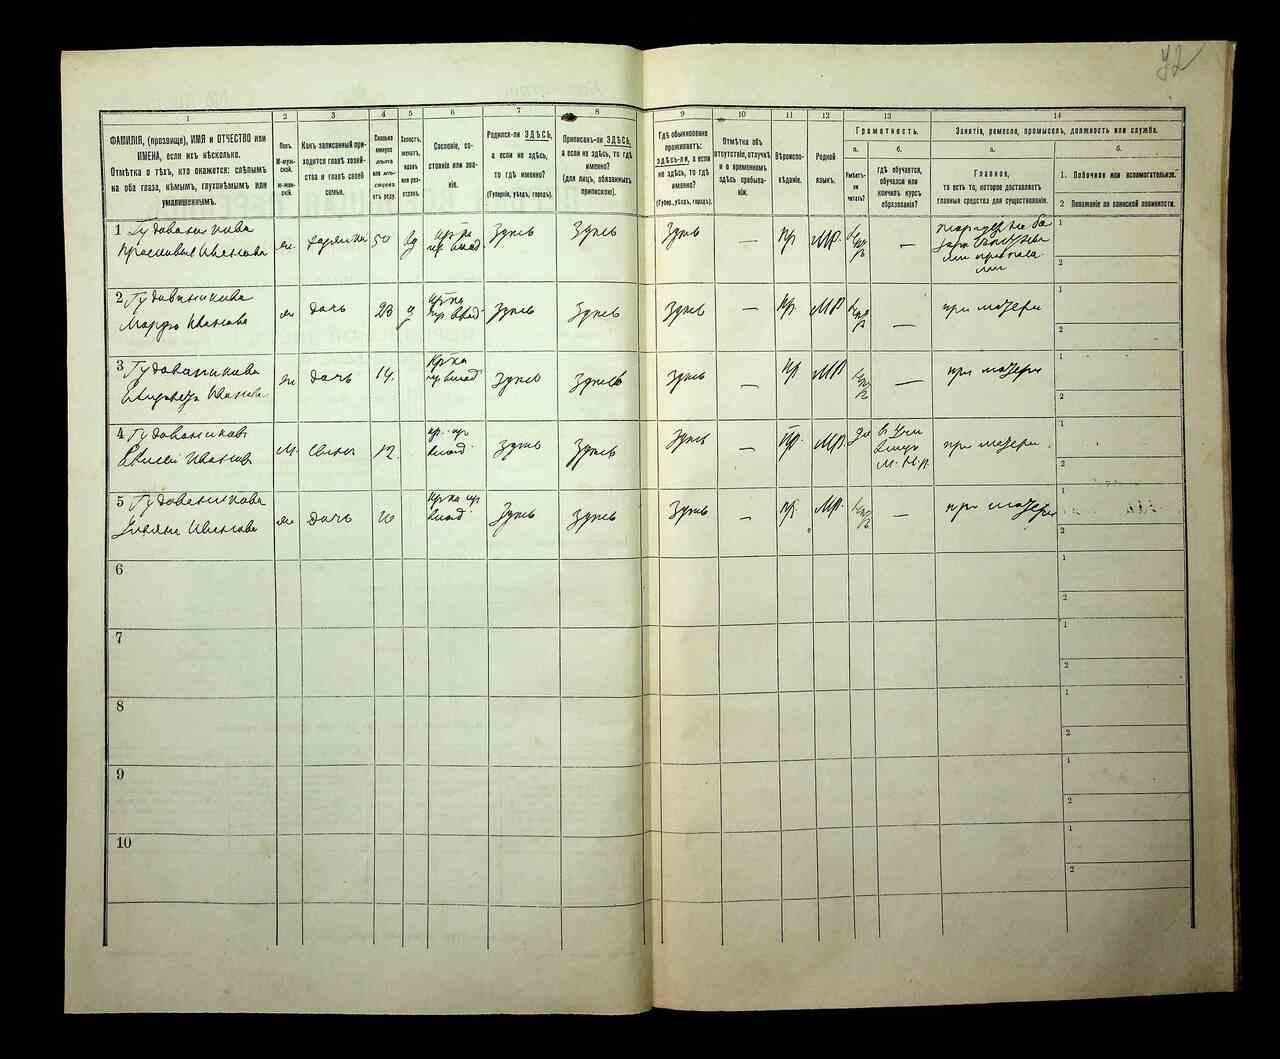 42
1
2
3
4
5
6
7
8
9
10
11
12
13
14
ФАМИЛІЯ, (прозвище), ИМЯ и ОТЧЕСТВО или
ИМЕНА, если ихъ нѣсколько.
Отмѣтка о тѣхъ, кто окажется: слѣпымъ
на оба глаза, нѣмымъ, глухонѣмымъ или
умалишеннымъ.
Полъ.
М-муж-
ской.
Ж-жен-
скій.
Какъ записанный при-
ходится главѣ хозяй-
ства и главѣ своей
семьи.
Сколько
минуло
лѣтъ
или мѣ-
сяцевъ
отъ роду.
Холостъ,
женатъ,
вдовъ
или раз-
веденъ.
Сословіе, со-
стояніе или зва-
ніе.
Родился-ли ЗДѢСЬ,
а если не здѣсь,
то гдѣ именно?
(Губернія, уѣздъ, городъ).
Приписанъ-ли ЗДѢСЬ,
а если не здѣсь, то гдѣ
именно?
(для лицъ, обязанныхъ
припискою).
Гдѣ обыкновенно
проживаетъ:
здѣсь-ли, а если
не здѣсь, то гдѣ
именно?
(Губер., уѣздъ, городъ).
Отмѣтка объ
отсутствіи, отлучкѣ
и о временномъ
здѣсь пребыва-
ніи.
Вѣроиспо-
вѣданіе.
Родной
языкъ.
Грамотность.
а.
Умѣетъ-
ли
читать?
б.
гдѣ обучается,
обучался или
кончилъ курсъ
образованія?
Занятіе, ремесло, промыселъ, должность или служба.
а.
Главное,
то есть то, которое доставляетъ
главныя средства для существованія.
б.
1. Побочное или вспомогательное.
2 Положеніе по воинской повинности.
1 Гудованикова
Прасковья Иванова
ж.
50
вд
Здѣсь
Здѣсь
Здѣсь
—
Пр
МР.
—
1
2
2 Гудованикова
Марфа Иванова
ж
дочь
23
Здѣсь
Здѣсь
Здѣсь
—
Пр.
МР
—
при матери
1
2
3 Гудованикова
Елизавета Иванова
ж
дочь
14.
Здѣсь
Здѣсь
Здѣсь
—
Пр
МР
—
при матери
1
2
4 Гудованиковъ
Елисей Ивановъ
М.
сынъ
12.
Здѣсь
Здѣсь
Здѣсь
—
Пр.
МР.
при матери
1
2
5 Гудованикова
Ульяна Иванова
ж
дочь
10
Здѣсь
Здѣсь
Здѣсь
—
пр.
МР.
—
при матери
1
2
6
1
2
7
1
2
8
1
2
9
1
2
10
1
2